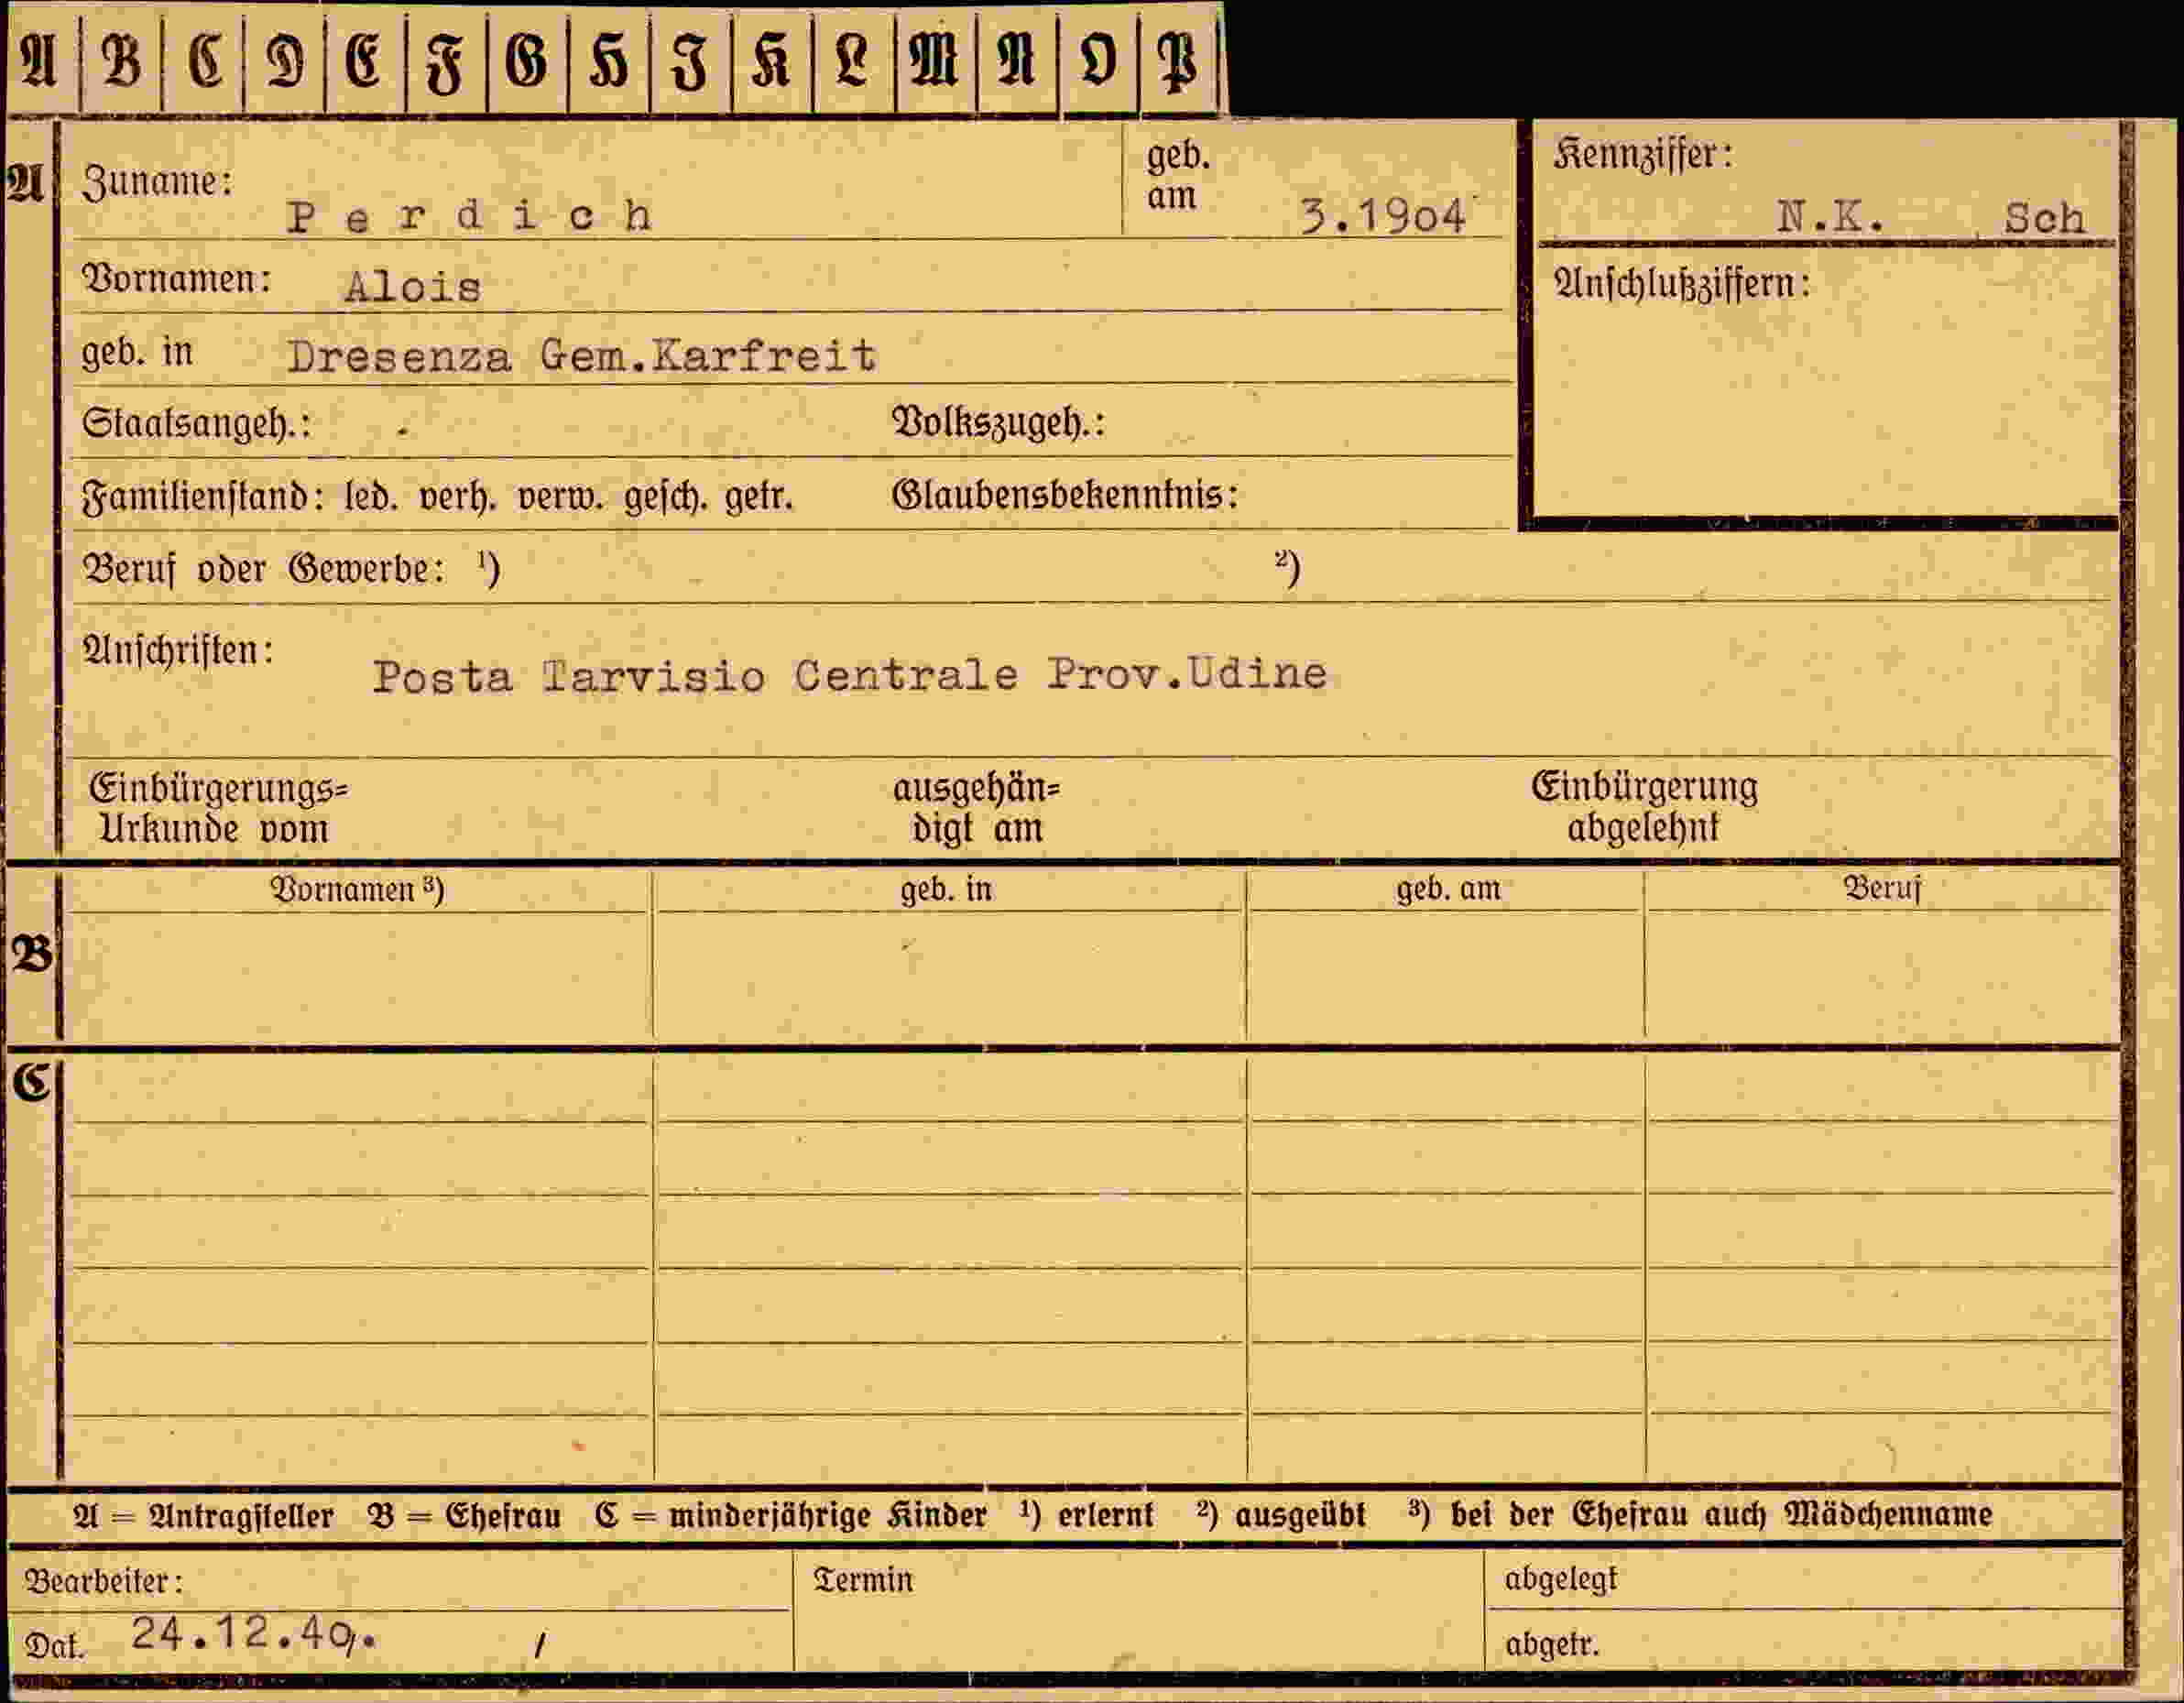 A B C D E F G H I K L M N O P
A Zuname: Perdich geb. am 3.1904
Kennziffer: N.K. Sch
Vornamen: Alois
Anschlußziffern:
geb. in Dresenza Gem.Karfreit
Staatsangeh.: Volkszugeh.:
Familienstand: led. verh. verw. gesch. getr. Glaubensbekenntnis:
Beruf oder Gewerbe: ¹) ²)
Anschriften: Posta Tarvisio Centrale Prov.Udine
Einbürgerungs= ausgehän= Einbürgerung
Urkunde vom digt am abgelehnt
Vornamen ³) geb. in geb. am Beruf
B
C
A = Antragsteller B = Ehefrau C = minderjährige Kinder ¹) erlernt ²) ausgeübt ³) bei der Ehefrau auch Mädchenname
Bearbeiter: Termin abgelegt
Dat. 24.12.40. / abgetr.